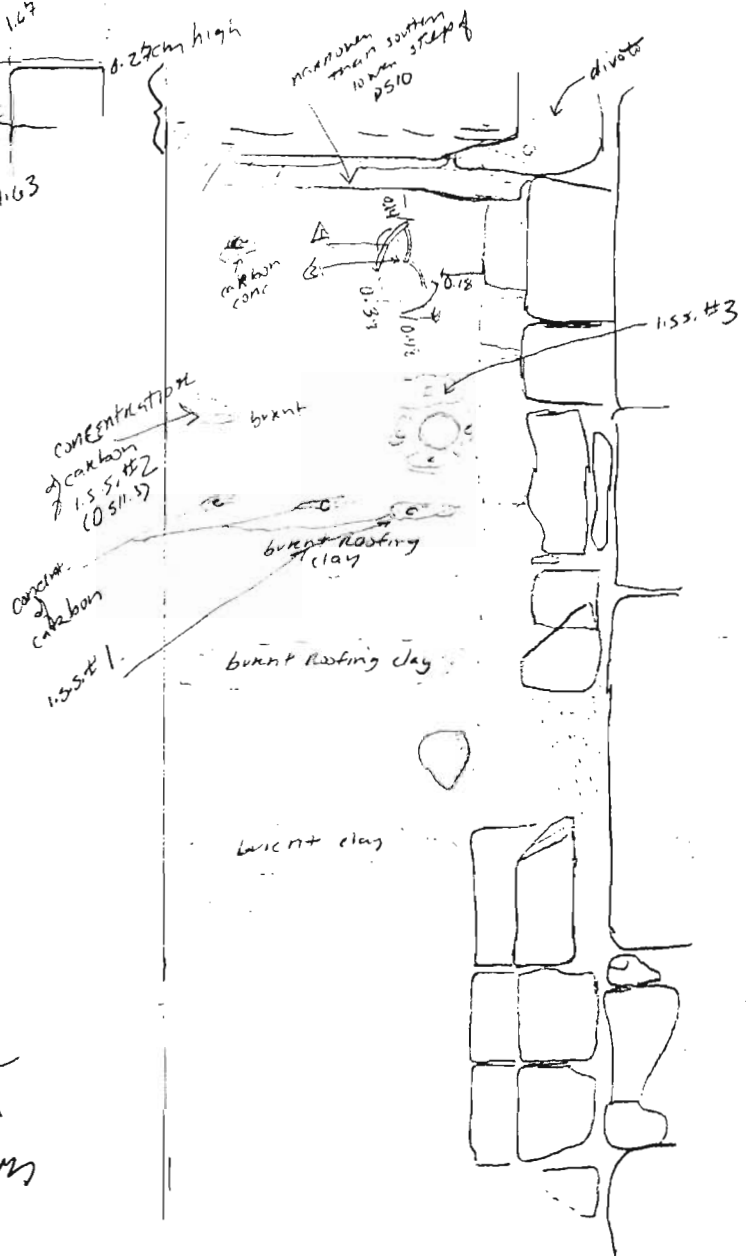 1.67
0.27cm high
1.63
narrower
than southern
lower step of
PS10
divots
carbon
conc
0.14
0.33
0.18
0.18
i.s.s. #3
concentration
of carbon
i.s.s. #2
(OS11.5)
burent
c
c
c
burent Roofing
clay
concen.
of
carbon
i.s.s. #1.
burent Roofing clay
burent clay